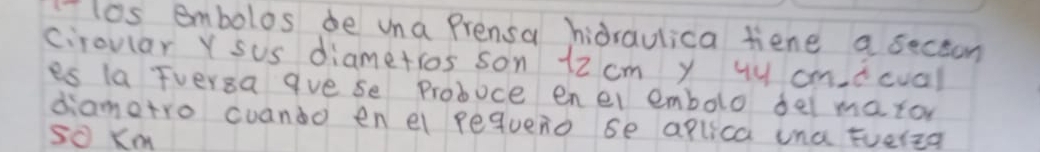 los embolos de una Prensa hidraulica tiene a seccon
Circular Y sus diametros son 12 cm y 44 cm. ¿cual
es la Fuersa que se Produce en el embolo del mayor
diametro cuando en el Pequeño se aplica una Fuerza
50 Km